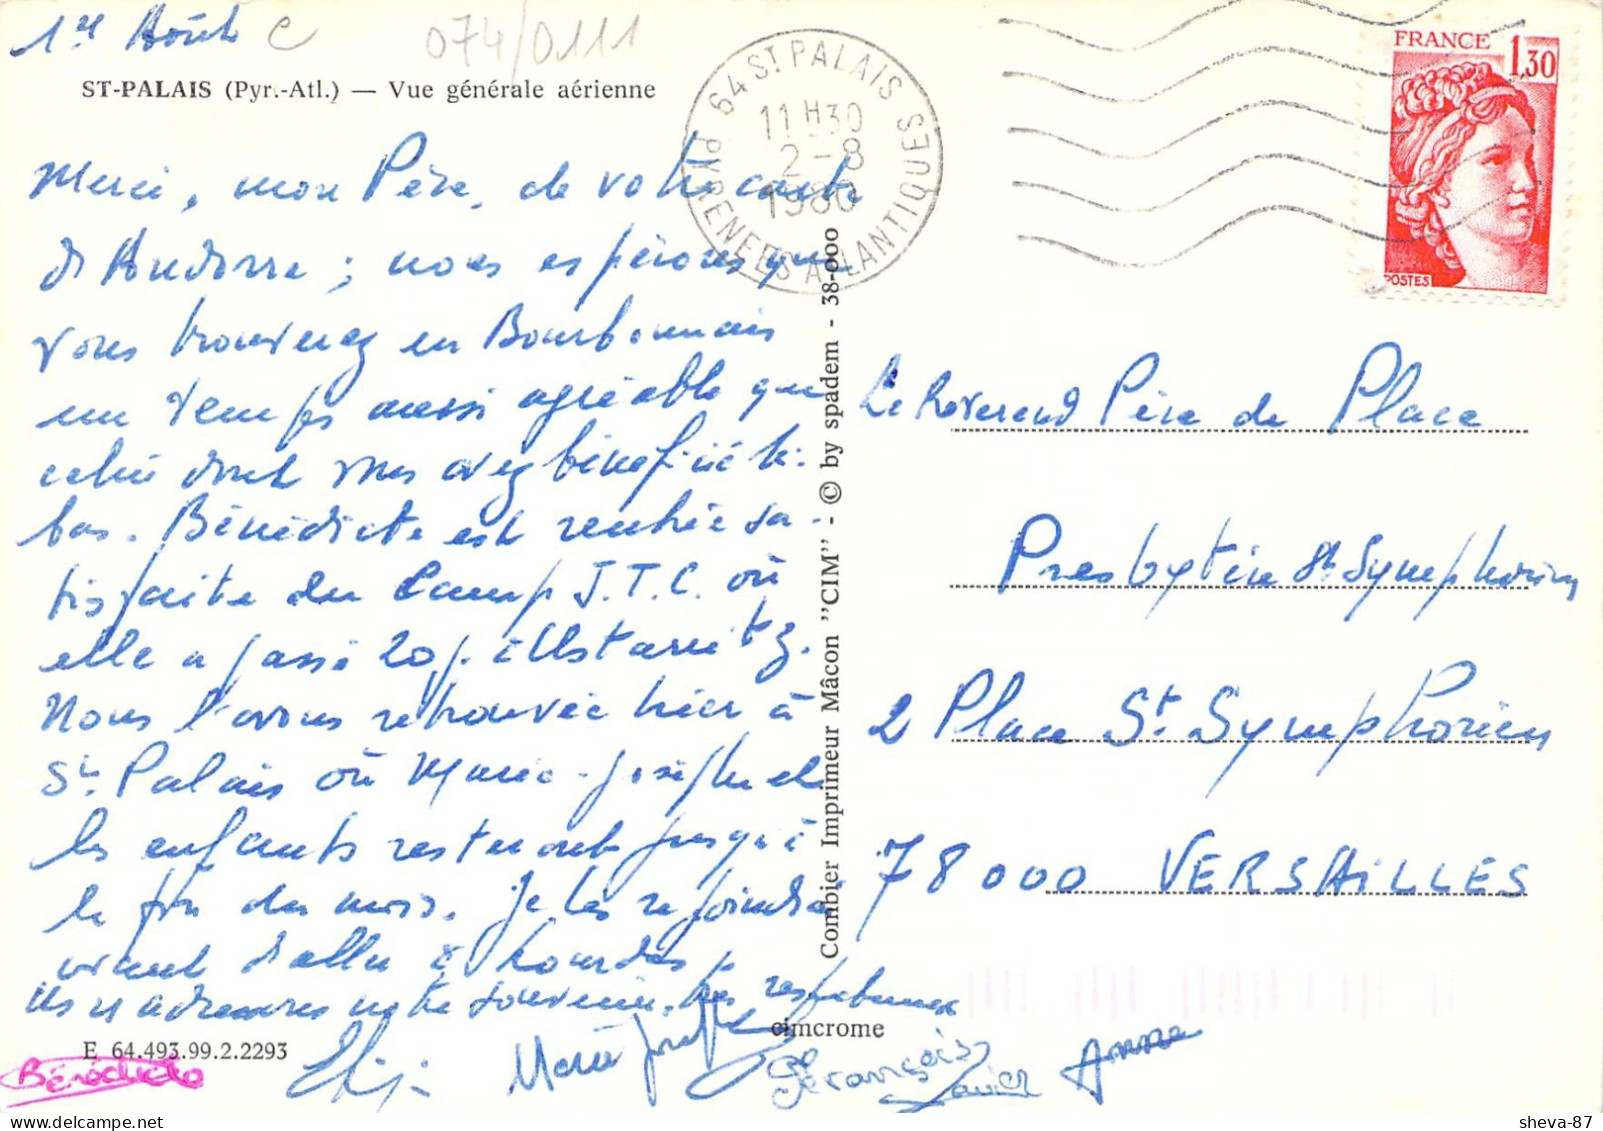 1er Août C
074/0111
ST-PALAIS (Pyr.-Atl.) — Vue générale aérienne
Merci, mon Père, de votre carte
d'Andorre ; nous espérons que
vous trouverez en Bourbonnais
un temps aussi agréable que
celui dont vous avez bénéficié là-
bas. Bénédicte est rentrée sa-
tisfaite du Camp J.T.C. où
elle a passé 20 j. à Ustaritz.
Nous l'avons retrouvée hier à
St. Palais où Marie-Josèphe et
les enfants resteront jusqu'à
la fin du mois. Je les rejoindrai
avant d'aller à Lourdes
notre souvenir très respectueux
Bénédicte
Marie Josèphe
François
Xavier
Anne
E 64.493.99.2.2293
cimcrome
Combier Imprimeur Mâcon "CIM" - © by spadem - 38-000
64 ST PALAIS
PYRENEES ATLANTIQUES
11H30
2-8
1980
FRANCE
1,30
POSTES
Le Révérend Père de Place
Presbytère St Symphorien
2 Place St. Symphorien
78000 VERSAILLES
sheva-87